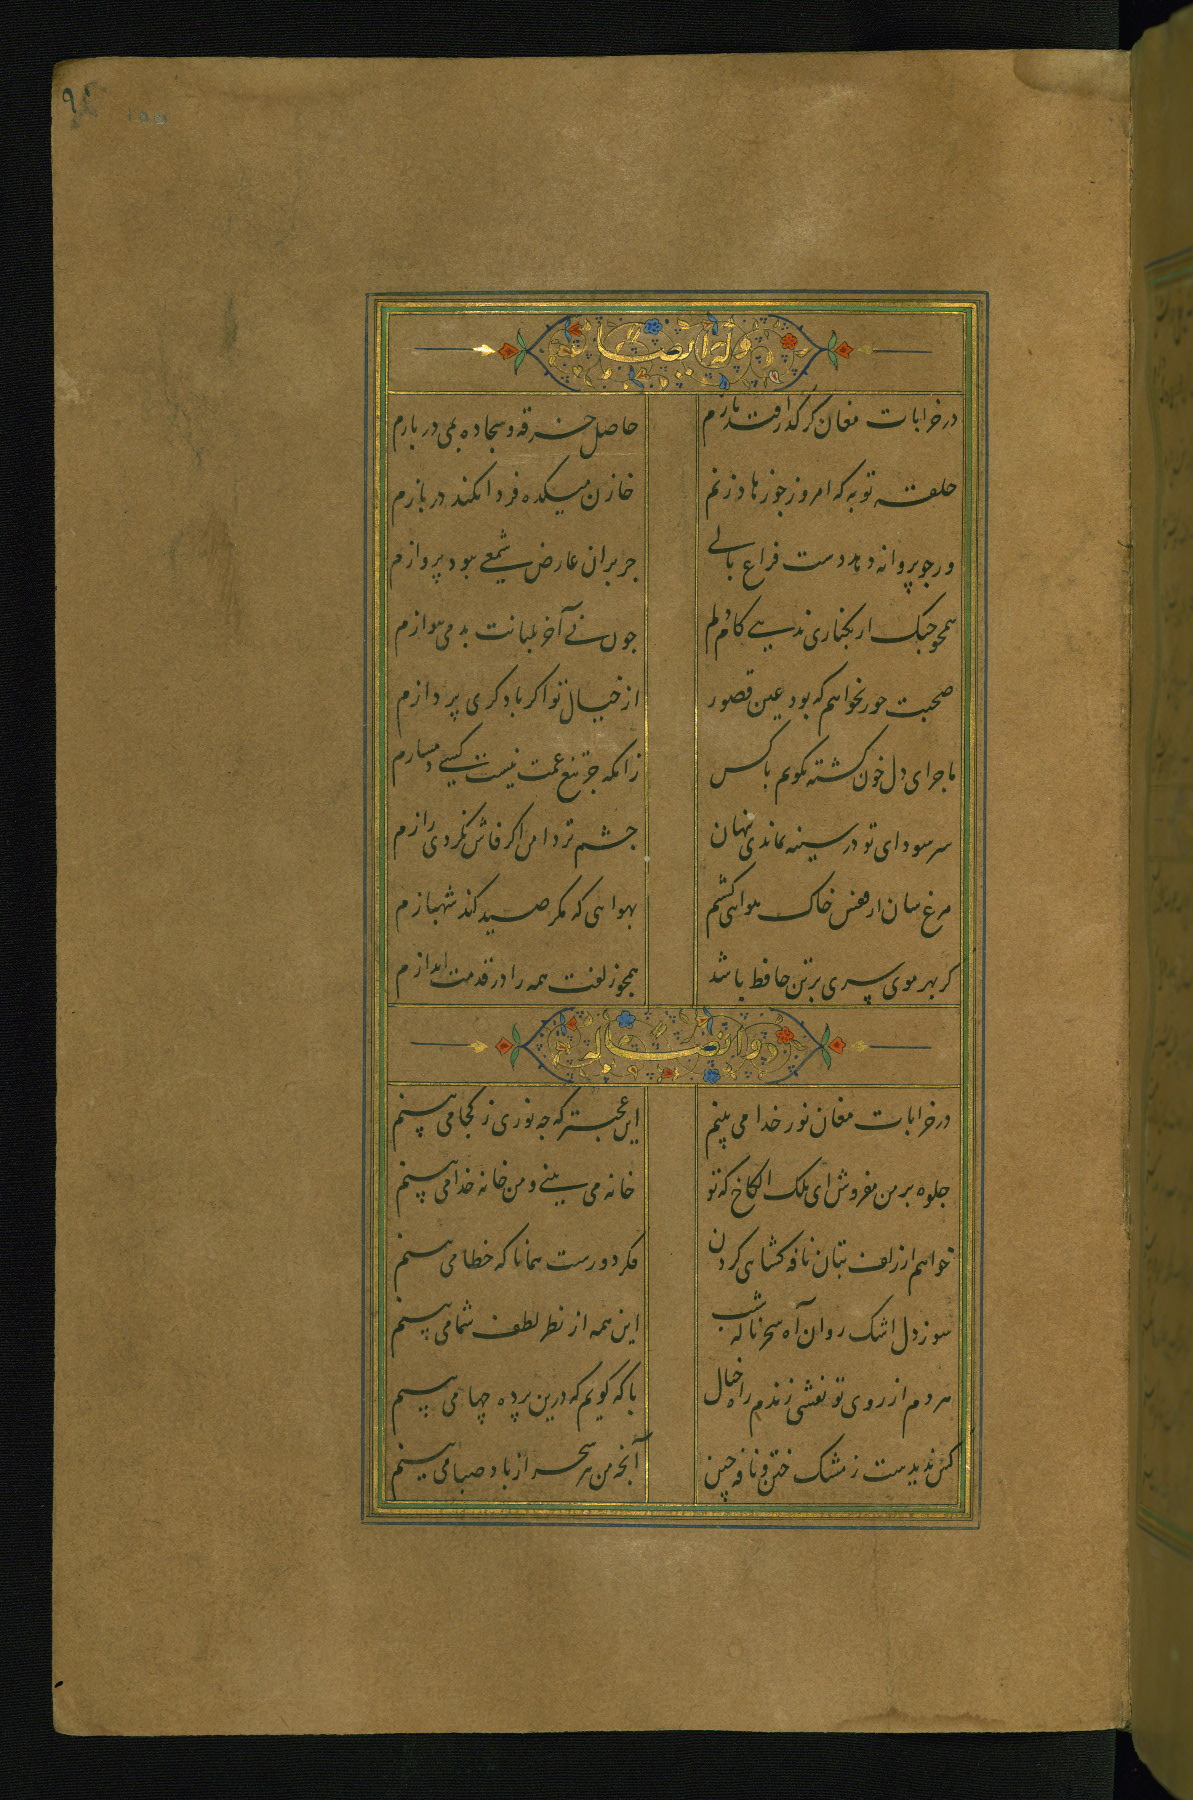 وله ایضا
در خرابات مغان گر گذر افتد بازم
حاصل خرقه و سجاده بمی دربازم
حلقه توبه گر امروز چو زهاد زنم
خازن میکده فردا نکند در بازم
ور چو پروانه دهد دست فراغ بالی
جز بران عارض شمعی نبود پروازم
همچو چنک ار بکناری ندهی کام دلم
چون نی آخر ز لبانت بدمی بنوازم
صحبت حور نخواهم که بود عین قصور
از خیال تو اگر با دگری پردازم
ماجرای دل خون گشته نگویم با کس
زانکه جز تیغ غمت نیست کسی دمسازم
سر سودای تو در سینه بماندی پنهان
چشم تر دامن اگر فاش نکردی رازم
مرغ سان از قفس خاک هوایی گشتم
بهوایی که مگر صید کند شهبازم
گر بهر موی سری بر تن حافظ باشد
همچو زلفت همه را در قدمت اندازم
و ایضا له
در خرابات مغان نور خدا می بینم
این عجبتر که چه نوری ز کجا می بینم
جلوه بر من مفروش ای ملک الحاج که تو
خانه می بینی و من خانه خدا می بینم
خواهم از زلف بتان نافه کشایی کردن
فکر دورست همانا که خطا می بینم
سوز دل اشک روان آه سحر ناله شب
این همه از نظر لطف شما می بینم
هر دم از روی تو نقشی زندم راه خیال
با که گویم که درین پرده چها می بینم
کس ندیدست ز مشک ختن و نافه چین
آنچه من هر سحر از باد صبا می بینم